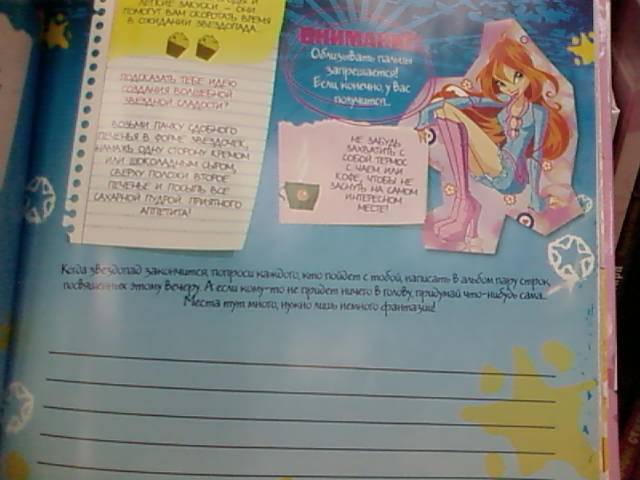 ЛЕГКИЕ ЗАКУСКИ – ОНИ
ПОМОГУТ ВАМ СКОРОТАТЬ ВРЕМЯ
В ОЖИДАНИИ ЗВЕЗДОПАДА...
ПОДСКАЗАТЬ ТЕБЕ ИДЕЮ
СОЗДАНИЯ ВОЛШЕБНОЙ
ЗВЕЗДНОЙ СЛАДОСТИ?
ВОЗЬМИ ПАЧКУ СДОБНОГО
ПЕЧЕНЬЯ В ФОРМЕ ЗВЕЗДОЧЕК,
НАМАЖЬ ОДНУ СТОРОНУ КРЕМОМ
ИЛИ ШОКОЛАДНЫМ СЫРОМ,
СВЕРХУ ПОЛОЖИ ВТОРОЕ
ПЕЧЕНЬЕ И ПОСЫПЬ ВСЕ
САХАРНОЙ ПУДРОЙ. ПРИЯТНОГО
АППЕТИТА!
ВНИМАНИЕ
Облизывать пальцы
запрещается!
Если, конечно, у вас
получится...
НЕ ЗАБУДЬ
ЗАХВАТИТЬ С
СОБОЙ ТЕРМОС
С ЧАЕМ ИЛИ
КОФЕ, ЧТОБЫ НЕ
ЗАСНУТЬ НА САМОМ
ИНТЕРЕСНОМ
МЕСТЕ!
Когда звездопад закончится, попроси каждого, кто пойдет с тобой, написать в альбом пару строк,
посвященных этому вечеру. А если кому-то не придет ничего в голову, придумай что-нибудь сама...
Места тут много, нужно лишь немного фантазии!